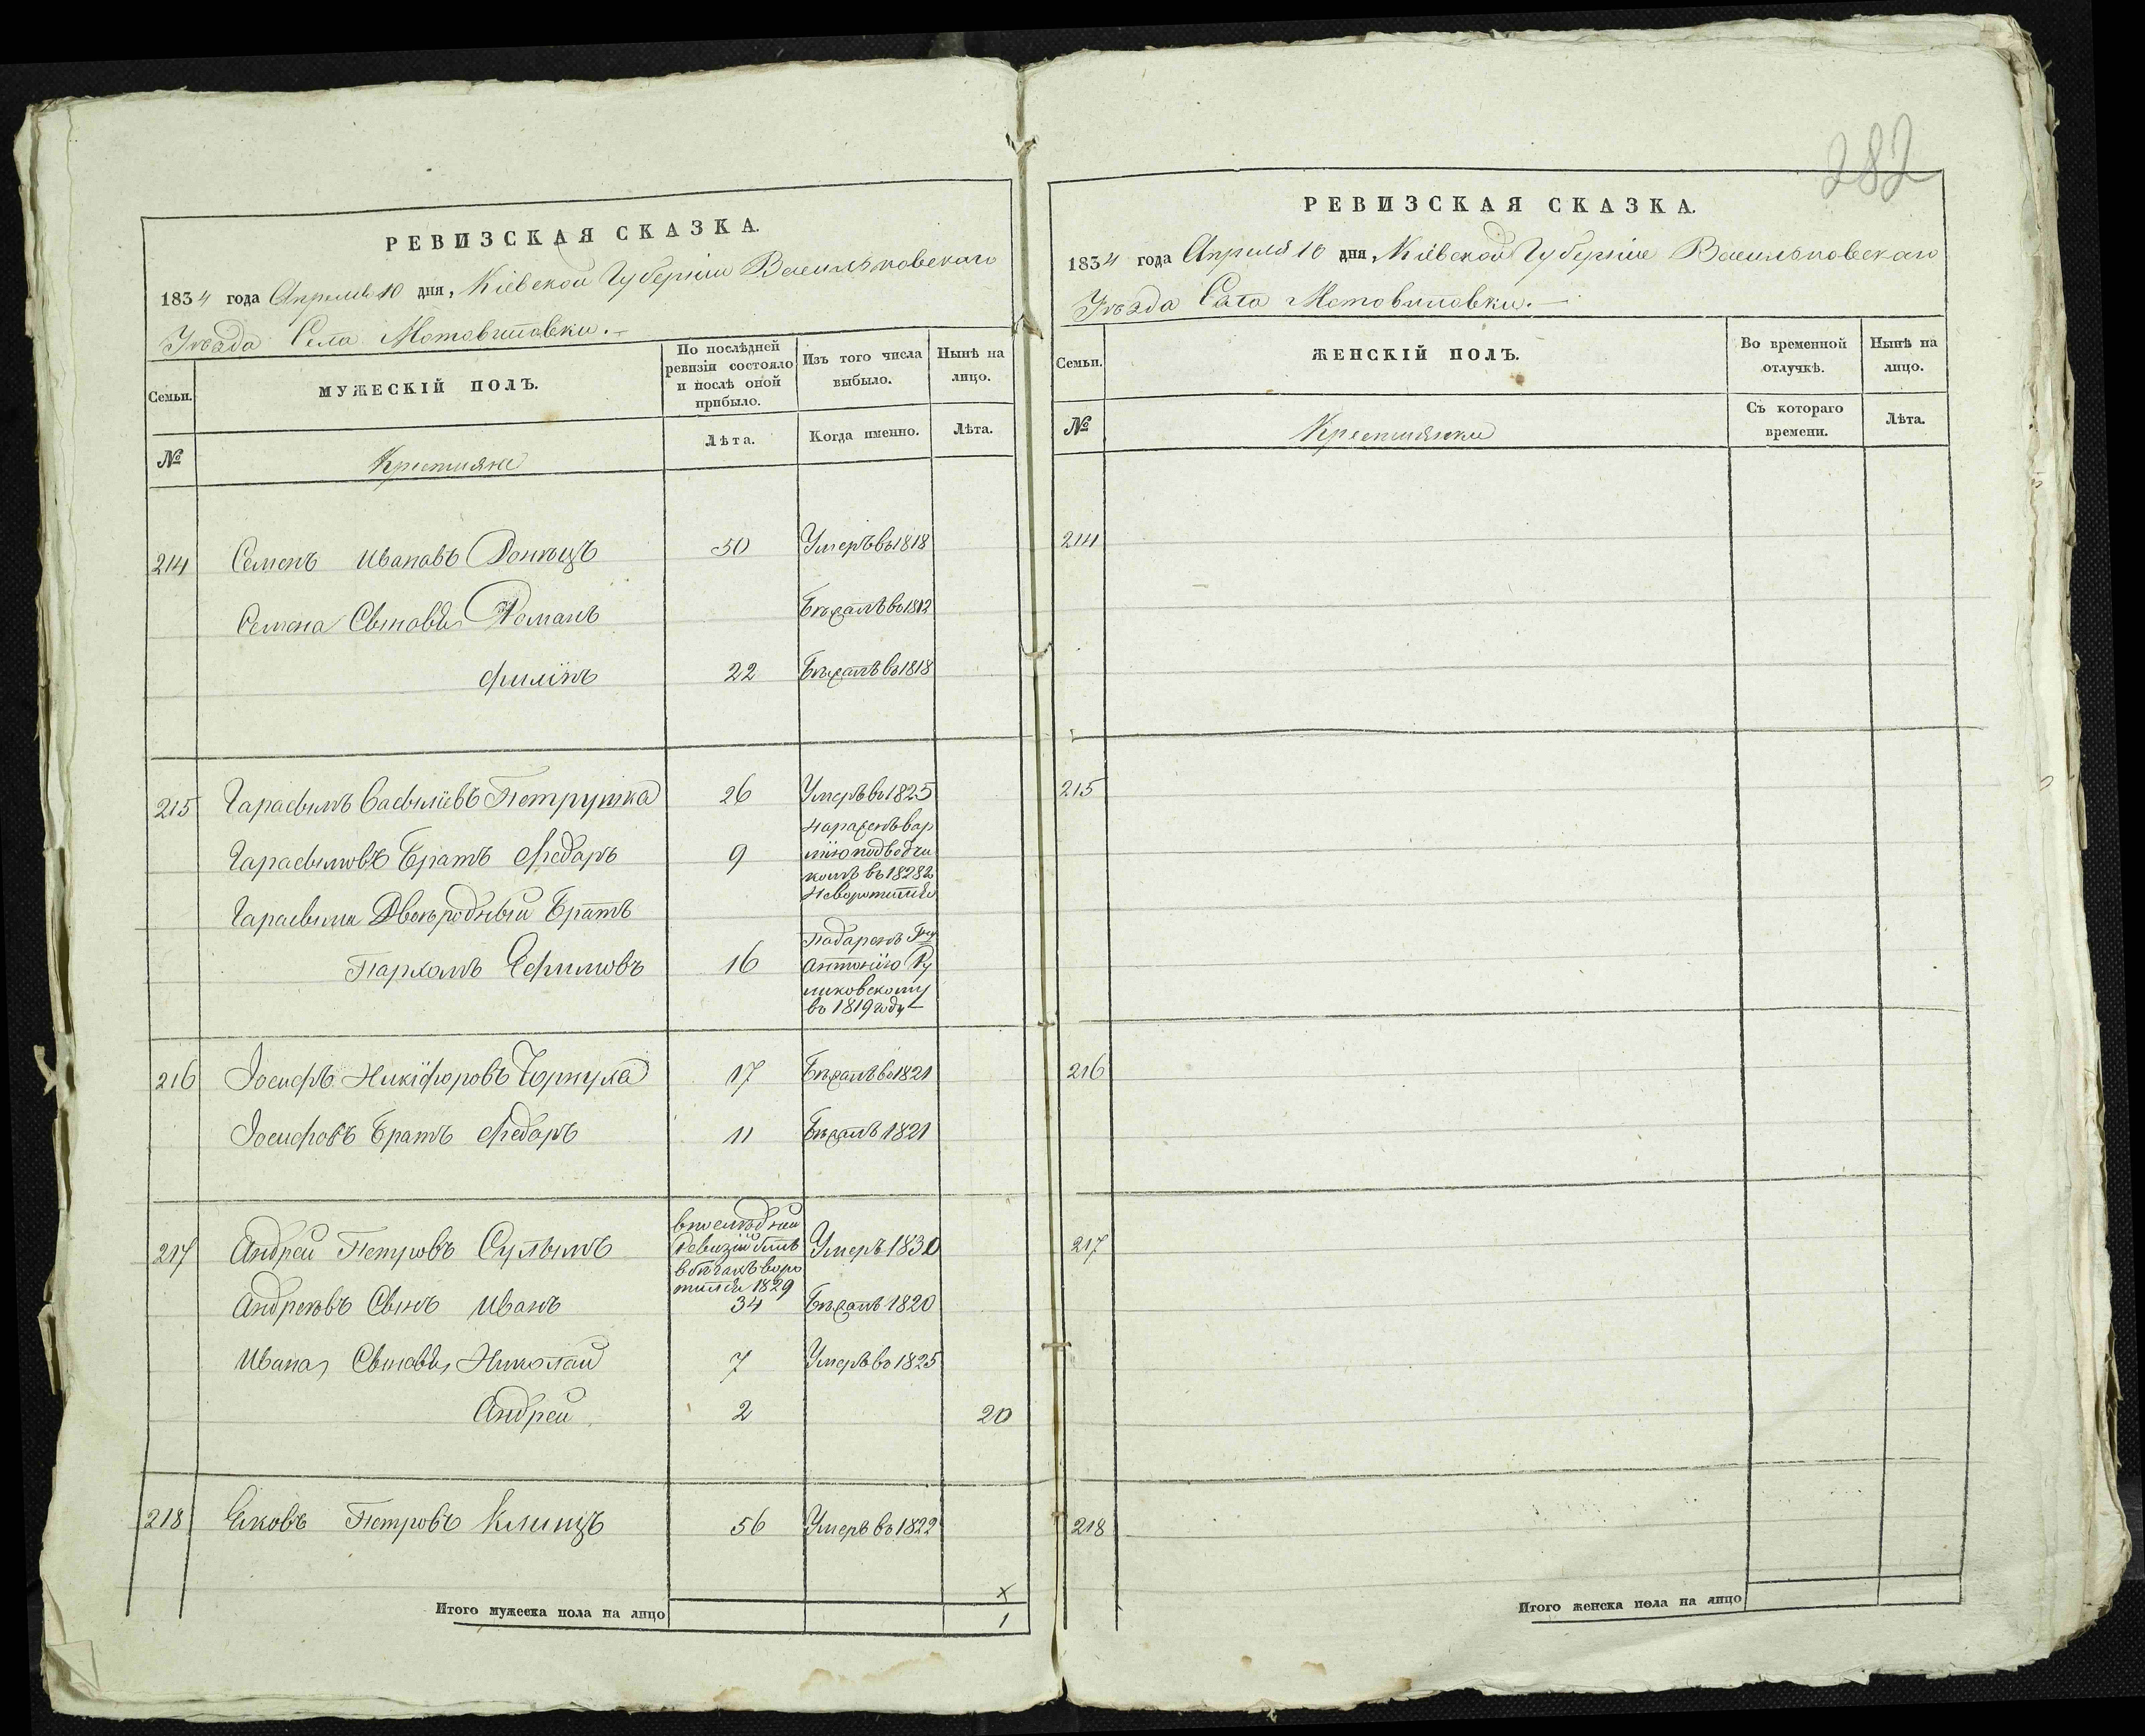 282
РЕВИЗСКАЯ СКАЗКА.
1834 года Апреля 10 дня, Кіевской Губерніи Васильковскаго
Уѣзда Села Мотовиловки.
Семьи.
МУЖЕСКІЙ ПОЛЪ.
По послѣдней ревизіи состояло и послѣ оной прибыло.
Изъ того числа выбыло.
Нынѣ на лицо.
№
Крестияне
Лѣта.
Когда именно.
Лѣта.
214 Семенъ Ивановъ Донѣцъ 50 Умеръ въ 1818
Семена Сыновья Романъ Бѣжалъ въ 1812
Филіпъ 22 Бѣжалъ въ 1818
215 Гарасымъ Васылиевъ Петрушка 26 Умеръ въ 1825
Гарасымовъ Братъ Федаръ 9 Наряженъ в ар
мію подводчи
комъ въ 1828 и
Неворотился
Гарасыма Двоюродный Братъ
Пархомъ Ефимовъ 16 Подаренъ
Антонію Ру
ликовскому
въ 1819 году
216 Іосифъ Никіфоровъ 17 Бѣжалъ въ 1821
Іосифовъ Братъ Федаръ 11 Бѣжалъ 1821
217 Андрей Петровъ Сулымъ
в последней
Ревизіи былъ
в бѣгахъ воро
тился 1829
Умеръ 1830
Андреювъ Сынъ Иванъ 34 Бѣжалъ 1820
Ивана Сыновья Николай 7 Умеръ въ 1825
Андрей 2 20
218 Яковъ Петровъ Климцъ 56 Умеръ въ 1822
х
Итого мужеска пола на лицо 1
РЕВИЗСКАЯ СКАЗКА.
1834 года Апреля 10 дня, Кіевской Губерніе Васильковскаго
Уѣзда Села Мотовиловки.
Семьи.
ЖЕНСКІЙ ПОЛЪ.
Во временной отлучкѣ.
Нынѣ на лицо.
№
Крестиянки
Съ котораго времени.
Лѣта.
214
215
216
217
218
Итого женска пола на лицо